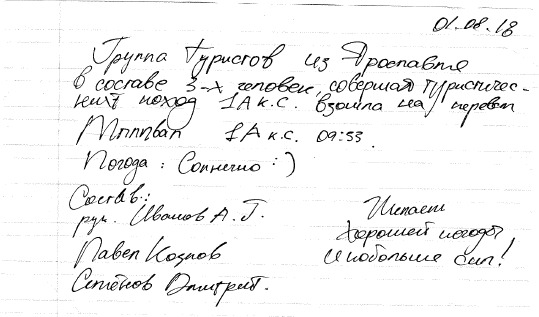 01.08.18
Группа туристов из Ярославля
в составе 3-х человек, совершая туристичес-
кий поход 1А к.с. взошла на перевал
1А к.с. 09:33.
Погода: Солнечно :)
Состав:
рук. Иванов А. Г.
Павел Козлов
Семёнов Дмитрий.
Желаем
хорошей погоды
и побольше сил!